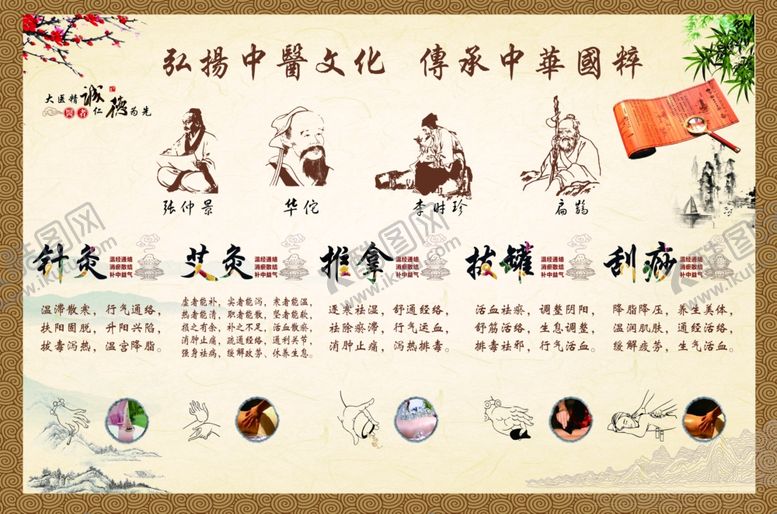 弘揚中醫文化 傳承中華國粹
大医精诚
贤者仁德为先
张仲景
华佗
李时珍
扁鹊
针灸
温经通络
消瘀散结
补中益气
温滞散寒，行气通络，
扶阳固脱，升阳兴陷，
拔毒泻热，温宫降脂。
艾灸
温经通络
消瘀散结
补中益气
虚者能补，实者能泻，寒者能温，
热者能清，聚者能散，坚者能软，
损之有余，补之不足，活血散瘀，
消肿止痛，疏通经络，通利关节，
强身祛病，缓解疲劳，休养生息。
推拿
温经通络
消瘀散结
补中益气
逐寒祛湿，舒通经络，
祛除瘀滞，行气运血，
消肿止痛，泻热排毒。
拔罐
温经通络
消瘀散结
补中益气
活血祛瘀，调整阴阳，
舒筋活络，生息调整，
排毒祛邪，行气活血。
刮痧
温经通络
消瘀散结
补中益气
降脂降压，养生美体，
温润肌肤，通经活络，
缓解疲劳，生气活血。